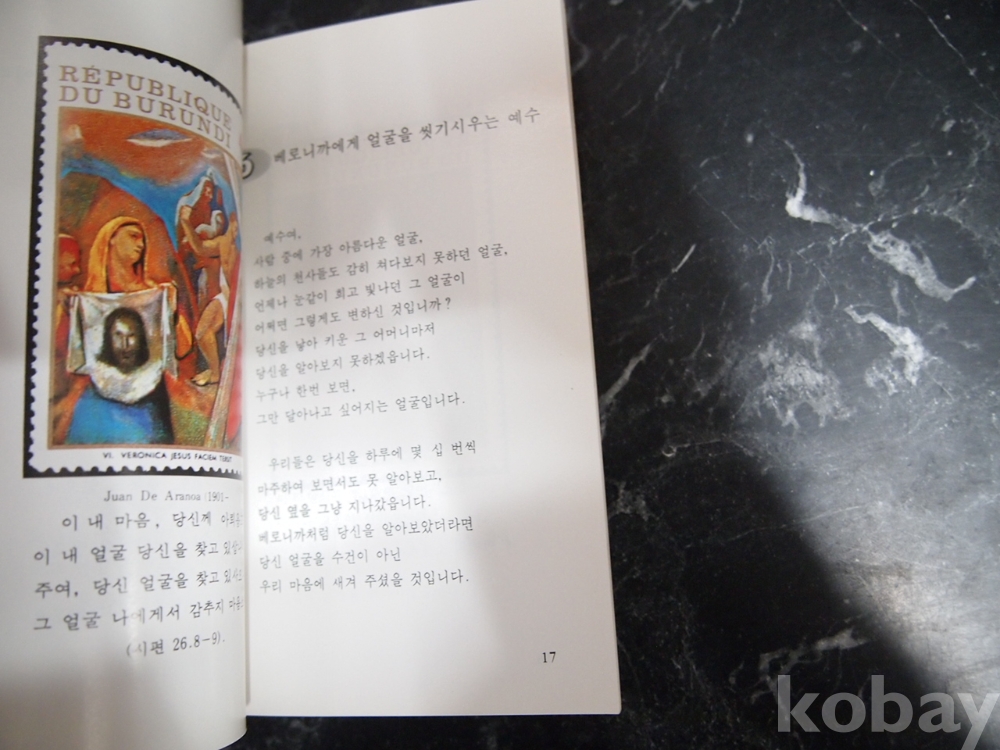 RÉPUBLIQUE
DU BURUNDI
VI. VERONICA JESUS FACIEM
Juan De Aranoa (1901-
이 내 마음, 당신께
이 내 얼굴 당신을 찾고
주여, 당신 얼굴을 찾고
그 얼굴 나에게서 감추지
(시편 26.8-9).
베로니까에게 얼굴을 씻기시우는 예수
예수여,
사람 중에 가장 아름다운 얼굴,
하늘의 천사들도 감히 쳐다보지 못하던 얼굴,
언제나 눈같이 희고 빛나던 그 얼굴이
어쩌면 그렇게도 변하신 것입니까?
당신을 낳아 키운 그 어머니마저
당신을 알아보지 못하겠읍니다.
누구나 한번 보면,
그만 달아나고 싶어지는 얼굴입니다.
우리들은 당신을 하루에 몇 십 번씩
마주하여 보면서도 못 알아보고,
당신 옆을 그냥 지나갔읍니다.
베로니까처럼 당신을 알아보았더라면
당신 얼굴을 수건이 아닌
우리 마음에 새겨 주셨을 것입니다.
17
kobay